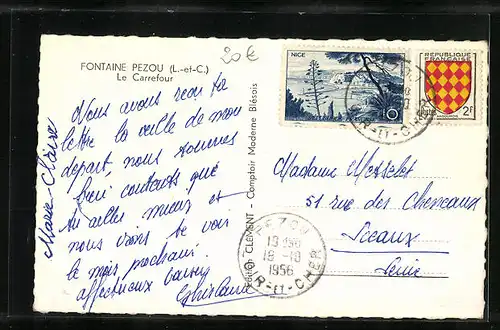 20€
FONTAINE PEZOU (L.-et-C.)
Le Carrefour
Nous avons reçu ta
lettre la veille de mon
départ, nous sommes
bien contents que
tu ailles mieux et
nous irons te voir
le mois prochain
affectueux baisers
Ghislaine
Marie-Claire
Edition CLEMENT - Comptoir Moderne Blésois
NICE
10
REPUBLIQUE
FRANÇAISE
2f
PEZOU
19 H
18-10
1956
LOIR-ET-CHER
Madame
51 rue des Cheneaux
Sceaux
Seine